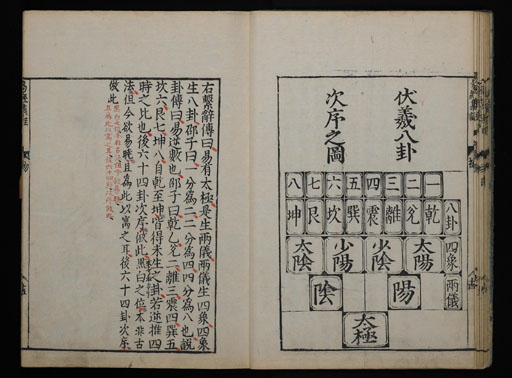 伏羲八卦
次序之圖
八卦
一乾
二兌
三離
四震
五巽
六坎
七艮
八坤
四象
太陽
少陰
少陽
太陰
兩儀
陽
陰
太極
右繫辭傳曰易有太極是生兩儀兩儀生四象四象
生八卦邵子曰一分為二二分為四四分為八也說
卦傳曰易逆數也邵子曰乾一兌二離三震四巽五
坎六艮七坤八自乾至坤皆得未生之卦若逆推四
時之比也後六十四卦次序倣此黑白之位本非古
法但今欲易曉且為此以寓之耳後六十四卦次序
倣此